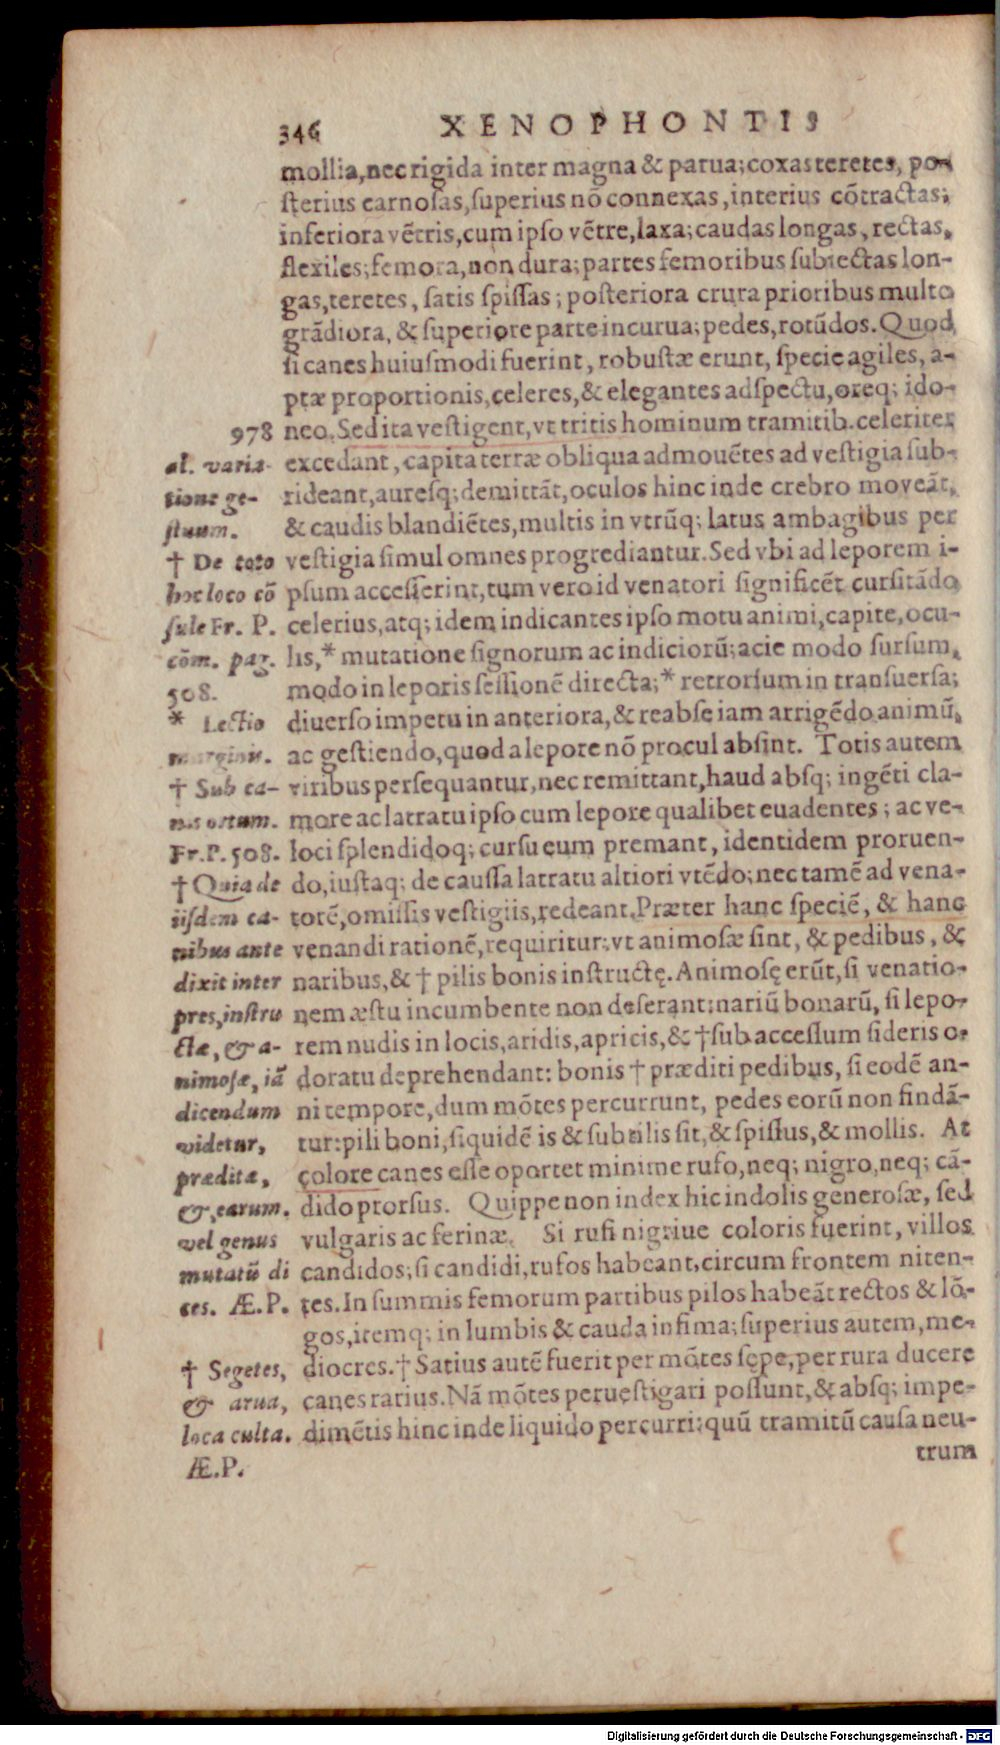 346 XENOPHONTIS
mollia, nec rigida inter magna & parua; coxas teretes, po-
sterius carnosas, superius nõ connexas, interius cõtractas;
inferiora vẽtris, cum ipso vẽtre, laxa; caudas longas, rectas,
flexiles; femora, non dura; partes femoribus subiectas lon-
gas, teretes, satis spissas; posteriora crura prioribus multo
grãdiora, & superiore parte incurua; pedes, rotũdos. Quod
si canes huiusmodi fuerint, robustæ erunt, specie agiles, a-
ptæ proportionis, celeres, & elegantes adspectu, oreq; ido-
978 neo. Sed ita vestigent, vt tritis hominum tramitib. celeriter
excedant, capita terræ obliqua admouẽtes ad vestigia sub-
rideant, auresq; demittãt, oculos hinc inde crebro moveãt,
& caudis blandiẽtes, multis in vtrũq; latus ambagibus per
vestigia simul omnes progrediantur. Sed vbi ad leporem i-
psum accesserint, tum vero id venatori significẽt cursitãdo
celerius, atq; idem indicantes ipso motu animi, capite, ocu-
lis, * mutatione signorum ac indiciorũ; acie modo sursum,
modo in leporis sessionẽ directa; * retrorsum in transuersa;
diuerso impetu in anteriora, & reabse iam arrigẽdo animũ,
ac gestiendo, quod a lepore nõ procul absint. Totis autem
viribus persequantur, nec remittant, haud absq; ingẽti cla-
more ac latratu ipso cum lepore qualibet euadentes; ac ve-
loci splendidoq; cursu eum premant, identidem proruen-
do, iustaq; de caussa latratu altiori vtẽdo; nec tamẽ ad vena-
torẽ, omissis vestigiis, redeant. Præter hanc speciẽ, & hanc
venandi rationẽ, requiritur, vt animosæ sint, & pedibus, &
naribus, & † pilis bonis instructę. Animosę erũt, si venatio-
nem æstu incumbente non deserant: nariũ bonarũ, si lepo-
rem nudis in locis, aridis, apricis, & † sub accessum sideris o-
doratu deprehendant: bonis † præditi pedibus, si eodẽ an-
ni tempore, dum mõtes percurrunt, pedes eorũ non findã-
tur: pili boni, siquidẽ is & subtilis sit, & spissus, & mollis. At
colore canes esse oportet minime rufo, neq; nigro, neq; cã-
dido prorsus. Quippe non index hic indolis generosæ, sed
vulgaris ac ferinæ. Si rufi nigriue coloris fuerint, villos
candidos; si candidi, rufos habeant, circum frontem niten-
tes. In summis femorum partibus pilos habeãt rectos & lõ-
gos, itemq; in lumbis & cauda infima; superius autem, me-
diocres. † Satius autẽ fuerit per mõtes sępe, per rura ducere
canes rarius. Nã mõtes peruestigari possunt, & absq; impe-
dimẽtis hinc inde liquido percurri: quũ tramitũ causa neu-
trum
al. varia-
tione ge-
stuum.
† De toto
hoc loco cõ
sule Fr. P.
cõm. pag.
508.
* Lectio
marginis.
† Sub ca-
nis ortum.
Fr. P. 508.
† Quia de
iisdem ca-
nibus ante
dixit inter
pres, instru
ctæ, & a-
nimosæ, iã
dicendum
videtur,
præditæ,
&, earum.
vel genus
mutatũ di
ces. Æ.P.
† Segetes,
& arua,
loca culta.
Æ.P.
Digitalisierung gefördert durch die Deutsche Forschungsgemeinschaft - DFG